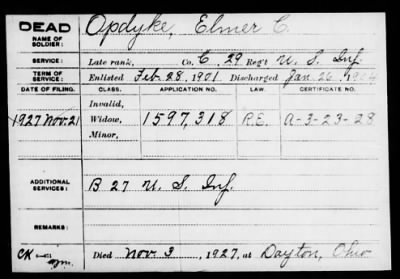 DEAD Opdyke, Elmer C.
NAME OF SOLDIER:
SERVICE: Late rank, Co. C, 29 Reg't U. S. Inf.
TERM OF SERVICE: Enlisted Feb. 28, 1901 Discharged Jan. 26, 1904
DATE OF FILING. CLASS. APPLICATION NO. LAW. CERTIFICATE NO.
Invalid,
1927 Nov. 21 Widow, 1597,318 P.E. A-3-23-28
Minor,
ADDITIONAL SERVICES: B 27 U. S. Inf.
REMARKS:
CK
Died Nov. 3, 1927, at Dayton, Ohio